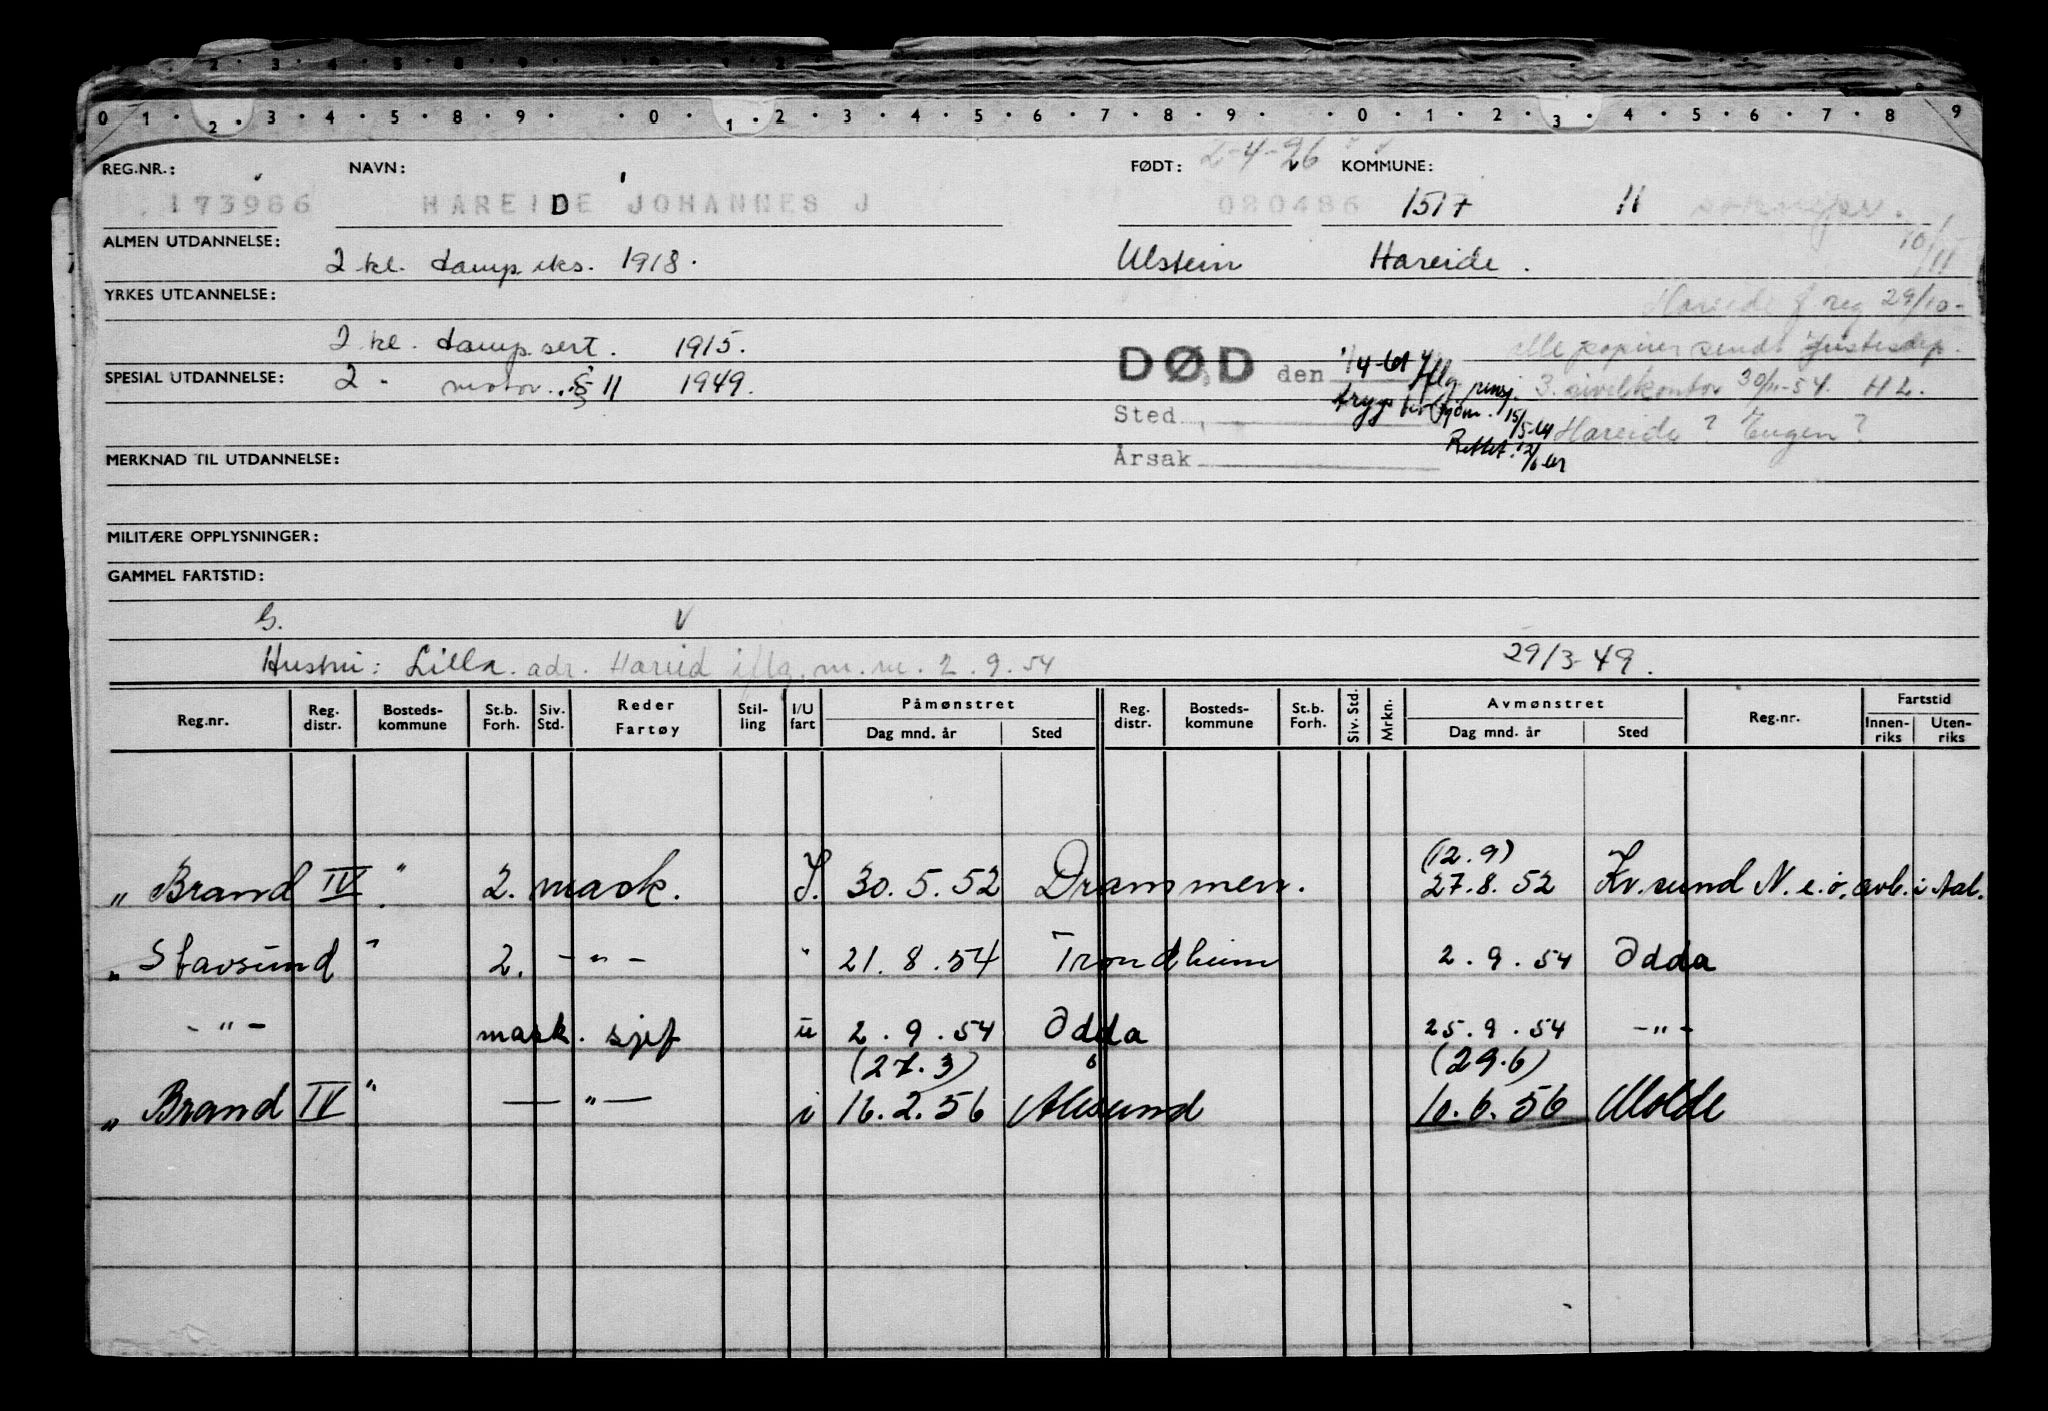 0 1 2 3 4 5 8 9 0 1 2 3 4 5 6 7 8 9 0 1 2 3 4 5 6 7 8 9
REG.NR.: NAVN: FØDT: 2-4-26 KOMMUNE:
173986 HAREIDE JOHANNES J 080486 1517 11
ALMEN UTDANNELSE: 2 kl. damp eks. 1918. Ulstein Hareide. 10/11
YRKES UTDANNELSE: Hareide f reg 29/10-
2 kl. damp sert. 1915. alle papirer sendt Justisdep.
SPESIAL UTDANNELSE: 2 " motor. § 11 1949. DØD den 1/4-61 iflg pensj. 3. sivilkontor 30/11-54. H L.
Sted tryg for sjøm. 15/5-61 Hareide? Eugen?
Årsak Rettet 12/6-61
MERKNAD TIL UTDANNELSE:
MILITÆRE OPPLYSNINGER:
GAMMEL FARTSTID:
G. V
Hustru: Lilla. adr. Hareid iflg. m.m. 2.9.54 29/3-49.
Reg.nr. Reg. distr. Bosteds-kommune St.b. Forh. Siv. Std. Reder Fartøy Stil-ling I/U fart Påmønstret Dag mnd. år Sted Reg. distr. Bosteds-kommune St.b. Forh. Siv. Std. Mrkn. Avmønstret Dag mnd. år Sted Reg.nr. Fartstid Innen-riks Uten-riks
(12.9)
" Brand IV " 2. mask. I. 30.5.52 Drammen. 27.8.52 Kr.sund N. e.o. avb. i Aal.
" Stavsund " 2. -"- " 21.8.54 Trondheim 2.9.54 Odda
-"- mask. sjef u 2.9.54 Odda 25.9.54 -"-
(27.3) (29.6)
" Brand IV " -"- i 16.2.56 Ålesund 10.6.56 Molde